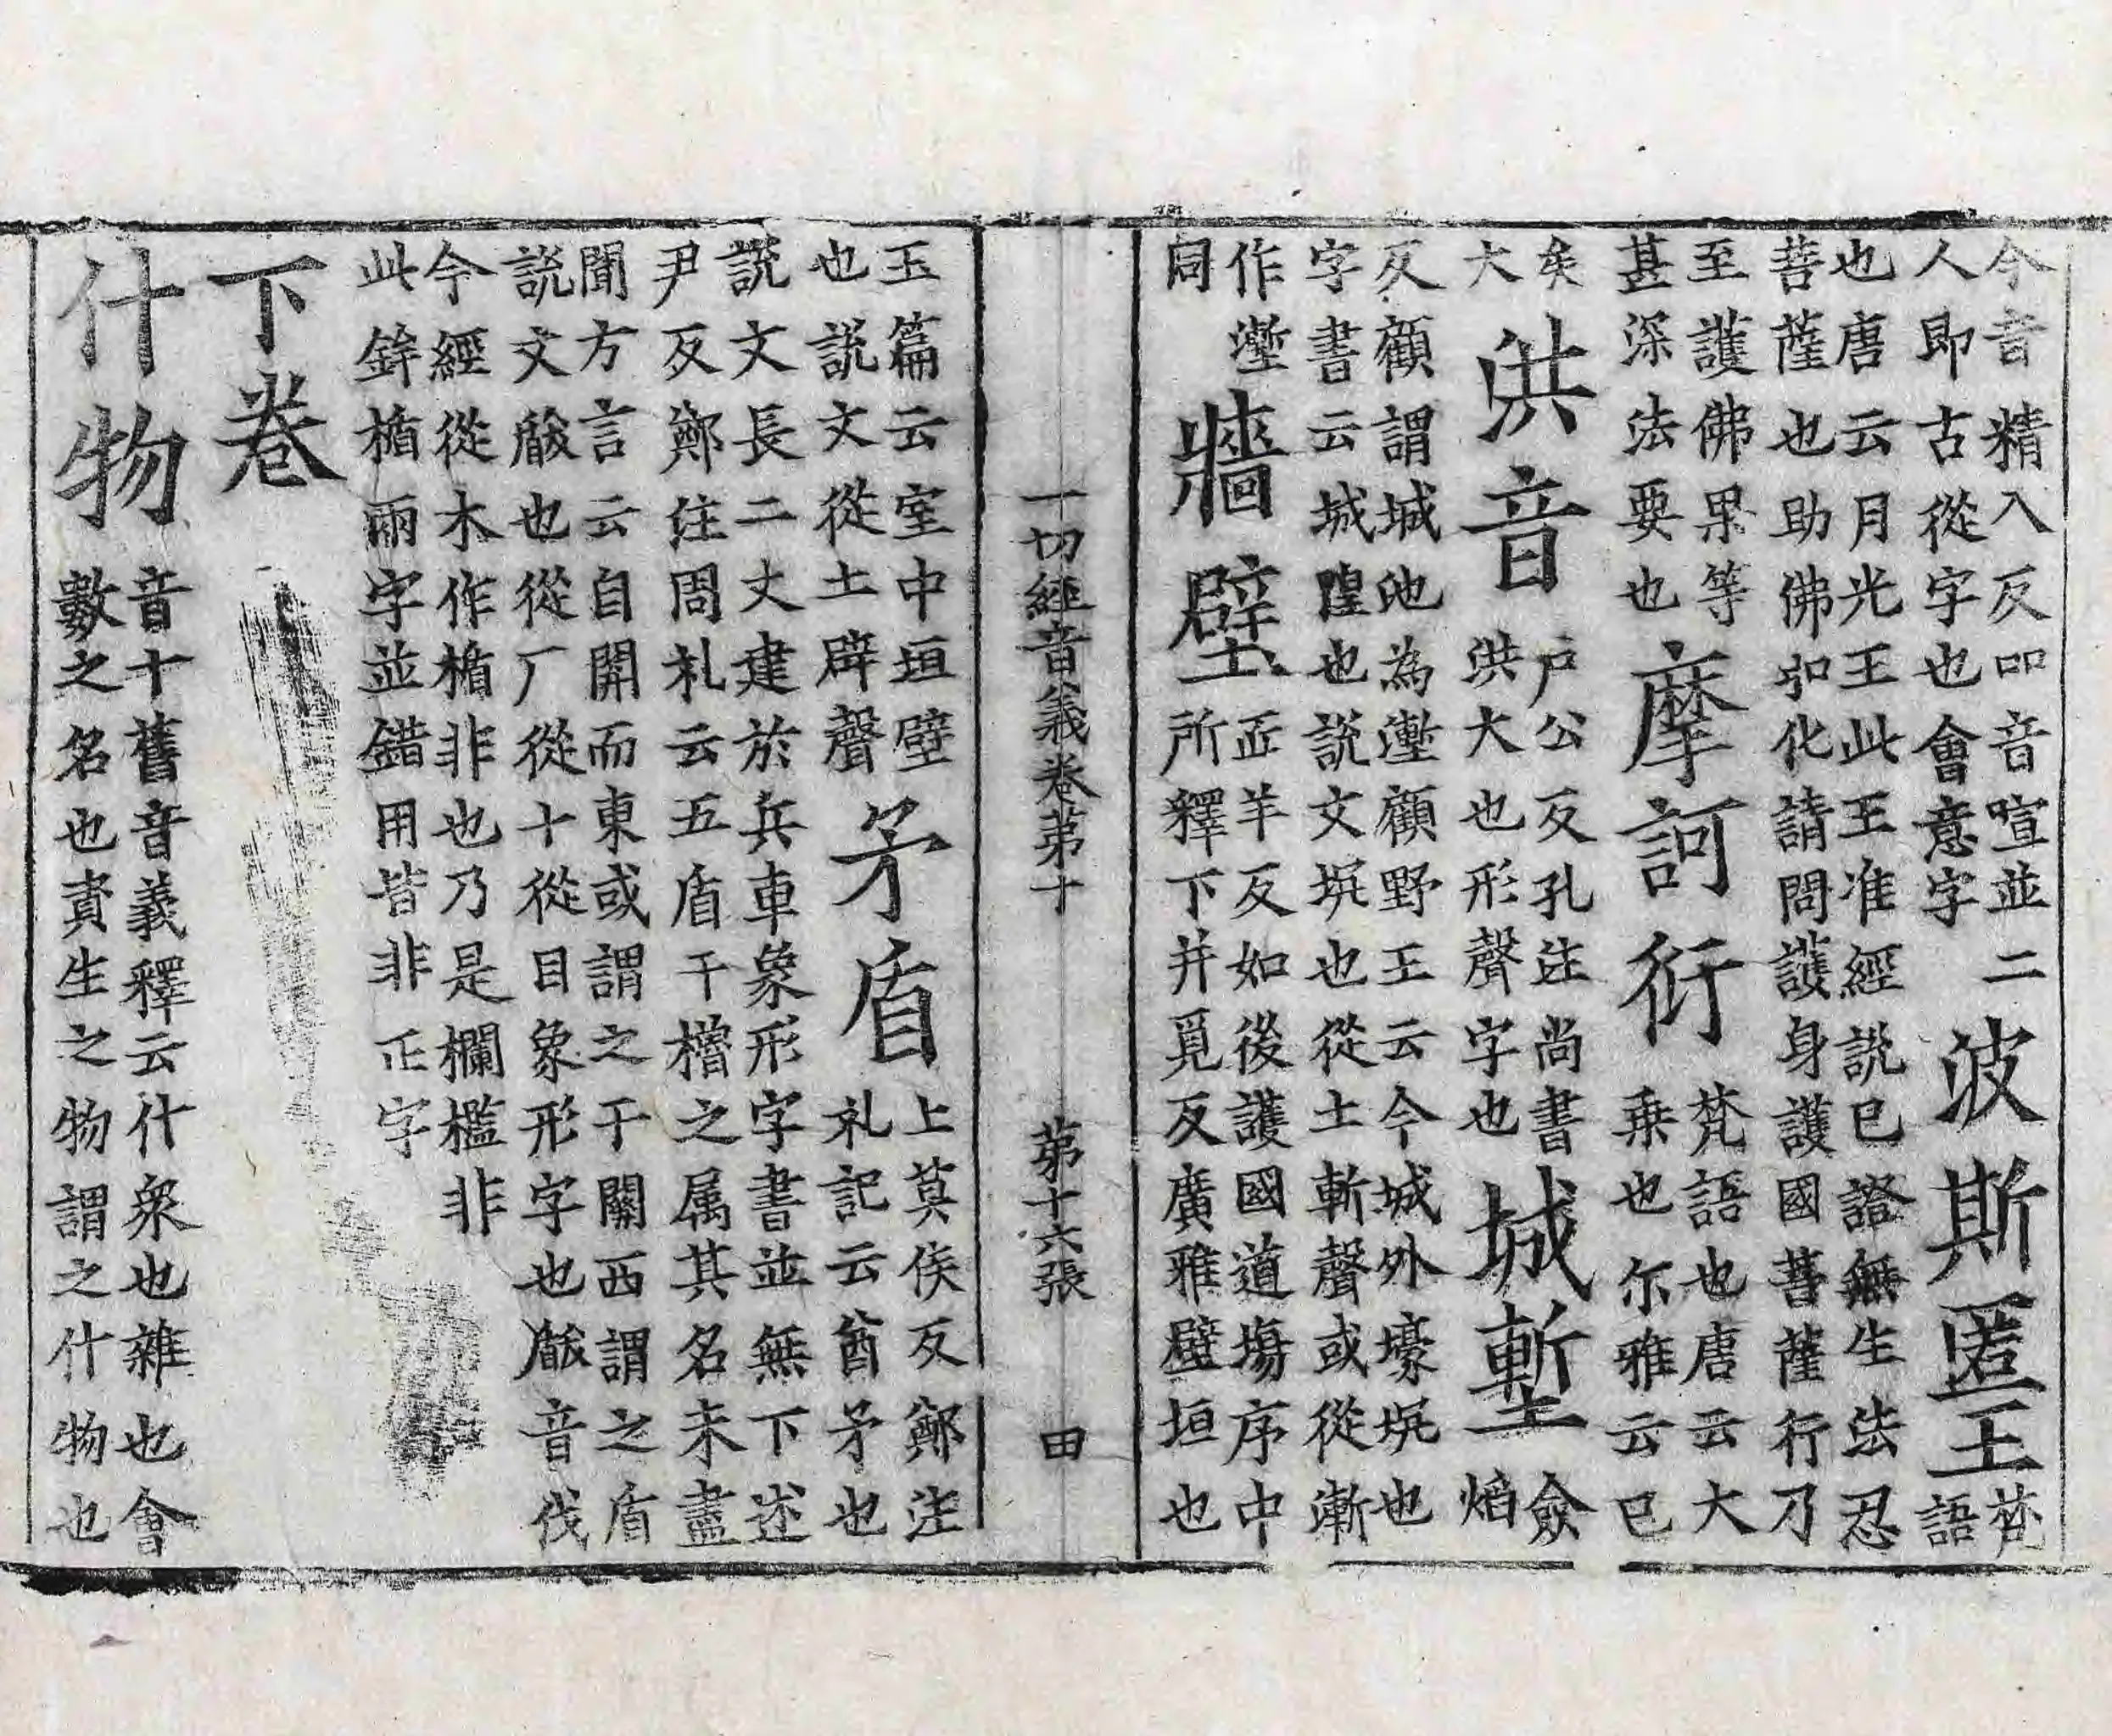 今音精入反吅音喧並二
人即古從字也會意字
波斯匿王梵
語
也唐云月光王此王准經說已證無生法忍
菩薩也助佛弘化請問護身護國菩薩行乃
至護佛果等
甚深法要也
摩訶衍梵語也唐云大
乗也尔雅云巳
矣
大
洪音戶公反孔注尚書
洪大也形聲字也
城塹僉
焰
反顧謂城池為壍顧野王云今城外壕坑也
字書云城隍也說文坑也從土斬聲或從漸
作壍
同
牆壁疋羊反如後護國道塲序中
所釋下并覓反廣雅壁垣也
一切經音義卷第十 第十六張 田
玉篇云室中垣壁
也說文從土辟聲
矛盾上莫侯反鄭注
礼記云酋矛也
說文長二丈建於兵車象形字書並無下述
尹反鄭注周礼云五盾干櫓之属其名未盡
聞方言云自關而東或謂之干關西謂之盾
說文瞂也從厂從十從目象形字也瞂音伐
今經從木作楯非也乃是欄檻非
此鉾楯兩字並錯用皆非正字
下卷
什物音十舊音義釋云什衆也雜也會
數之名也資生之物謂之什物也